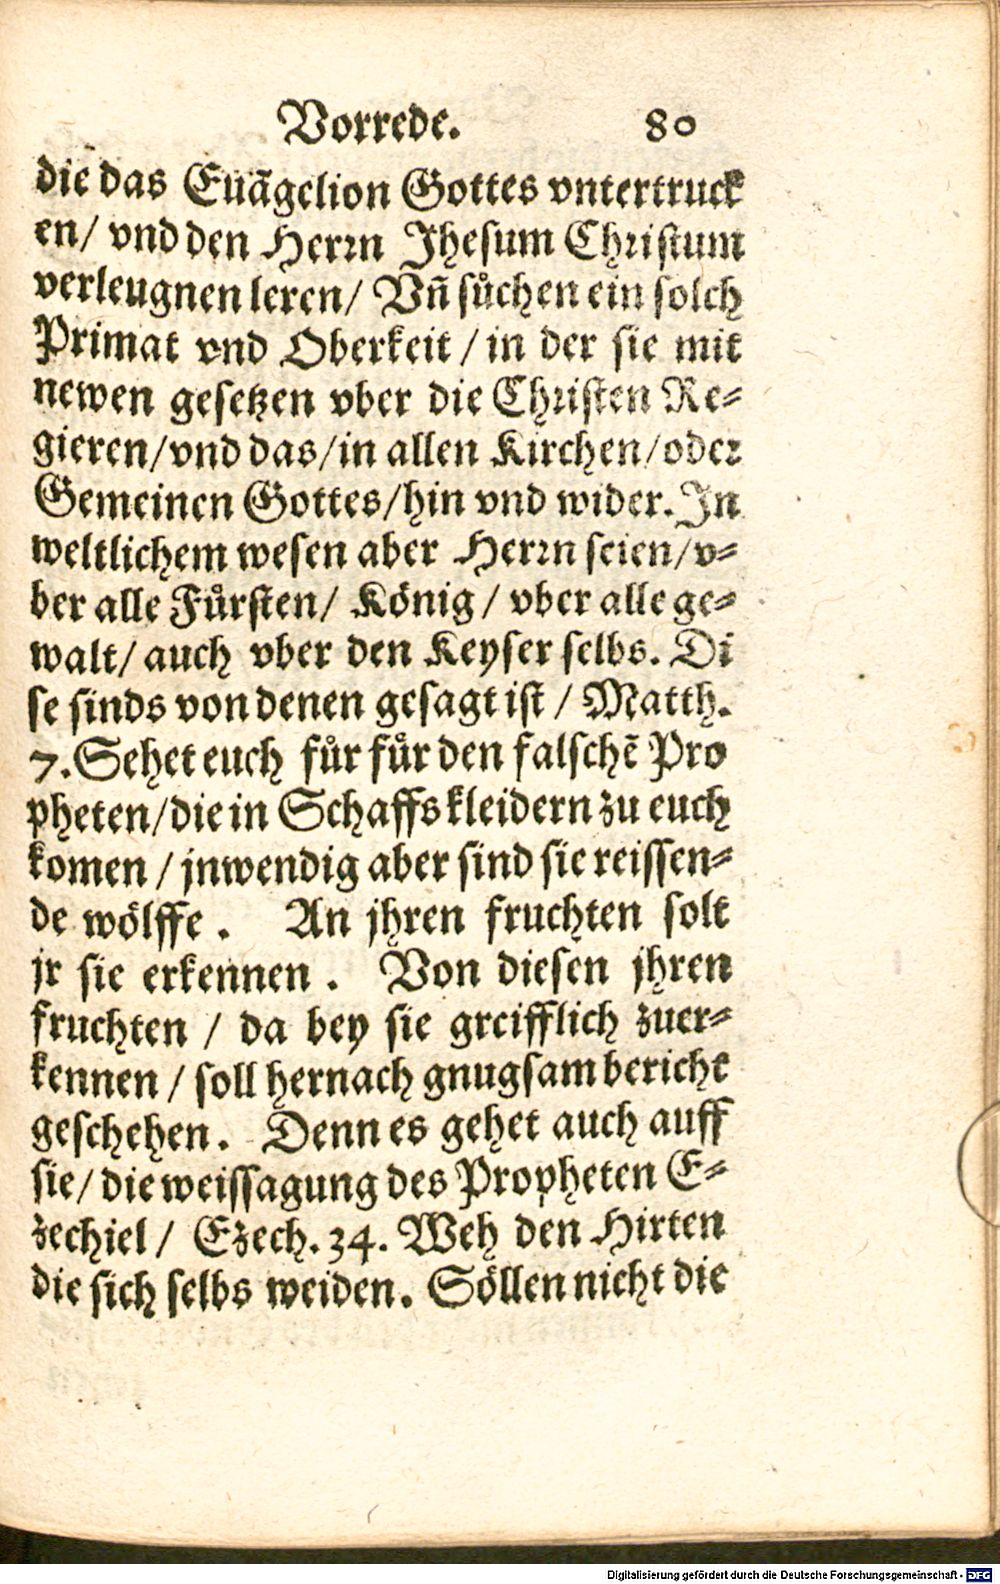 Vorrede. 80
die das Euãgelion Gottes vntertruck
en/ vnd den Herrn Jhesum Christum
verleugnen leren/ Vñ sůchen ein solch
Primat vnd Oberkeit / in der sie mit
newen gesetzen vber die Christen Re⸗
gieren/vnd das/in allen Kirchen/oder
Gemeinen Gottes/hin vnd wider. In
weltlichem wesen aber Herrn seien/v⸗
ber alle Fůrsten/ König / vber alle ge⸗
walt/ auch vber den Keyser selbs. Di
se sinds von denen gesagt ist / Matth.
7. Sehet euch fůr fůr den falschẽ Pro
pheten/die in Schaffskleidern zu euch
komen / jnwendig aber sind sie reissen⸗
de wölffe . An jhren fruchten solt
jr sie erkennen . Von diesen jhren
fruchten / da bey sie greifflich zuer⸗
kennen / soll hernach gnugsam bericht
geschehen. Denn es gehet auch auff
sie/ die weissagung des Propheten E⸗
zechiel / Ezech. 34. Weh den Hirten
die sich selbs weiden. Söllen nicht die
Digitalisierung gefördert durch die Deutsche Forschungsgemeinschaft - DFG